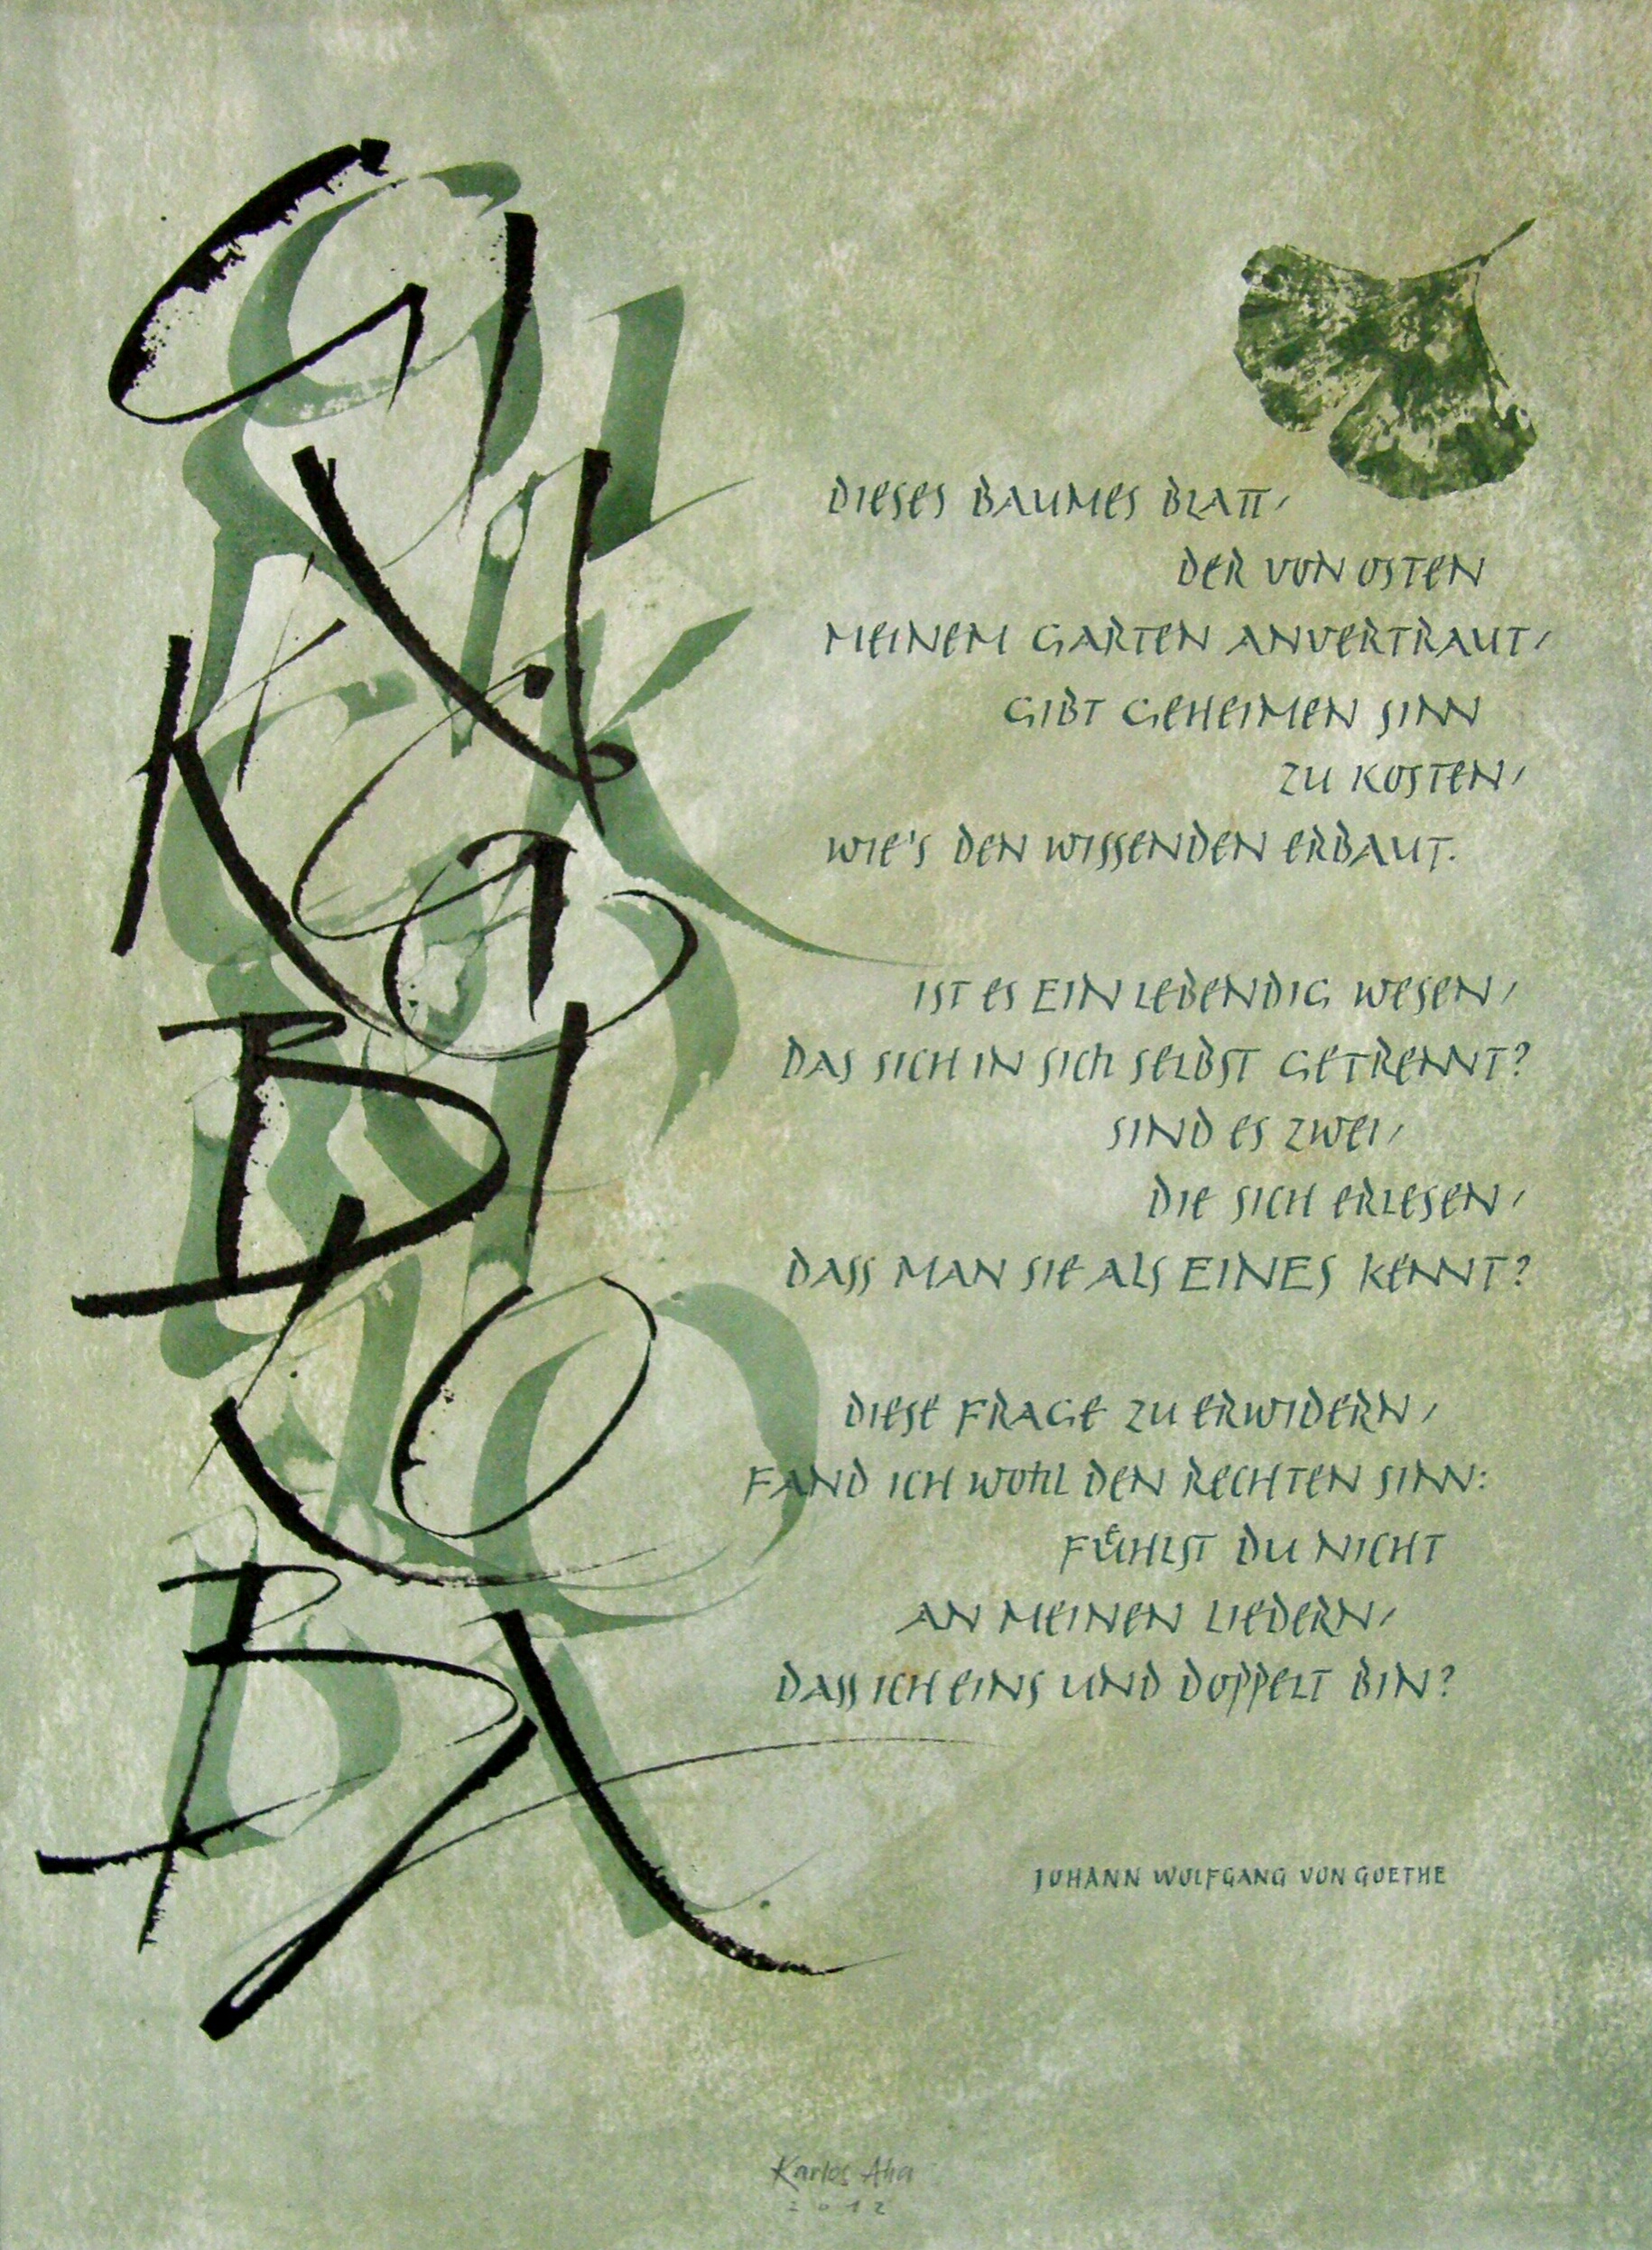 GI
N
KGO
BI
LO
BA
DIESES BAUMES BLATT,
DER VON OSTEN
MEINEM GARTEN ANVERTRAUT,
GIBT GEHEIMEN SINN
ZU KOSTEN,
WIE'S DEN WISSENDEN ERBAUT.
IST ES EIN LEBENDIG WESEN,
DAS SICH IN SICH SELBST GETRENNT?
SIND ES ZWEI,
DIE SICH ERLESEN,
DASS MAN SIE ALS EINES KENNT?
DIESE FRAGE ZU ERWIDERN,
FAND ICH WOHL DEN RECHTEN SINN:
FÜHLST DU NICHT
AN MEINEN LIEDERN,
DASS ICH EINS UND DOPPELT BIN?
JOHANN WOLFGANG VON GOETHE
Karlos
2012